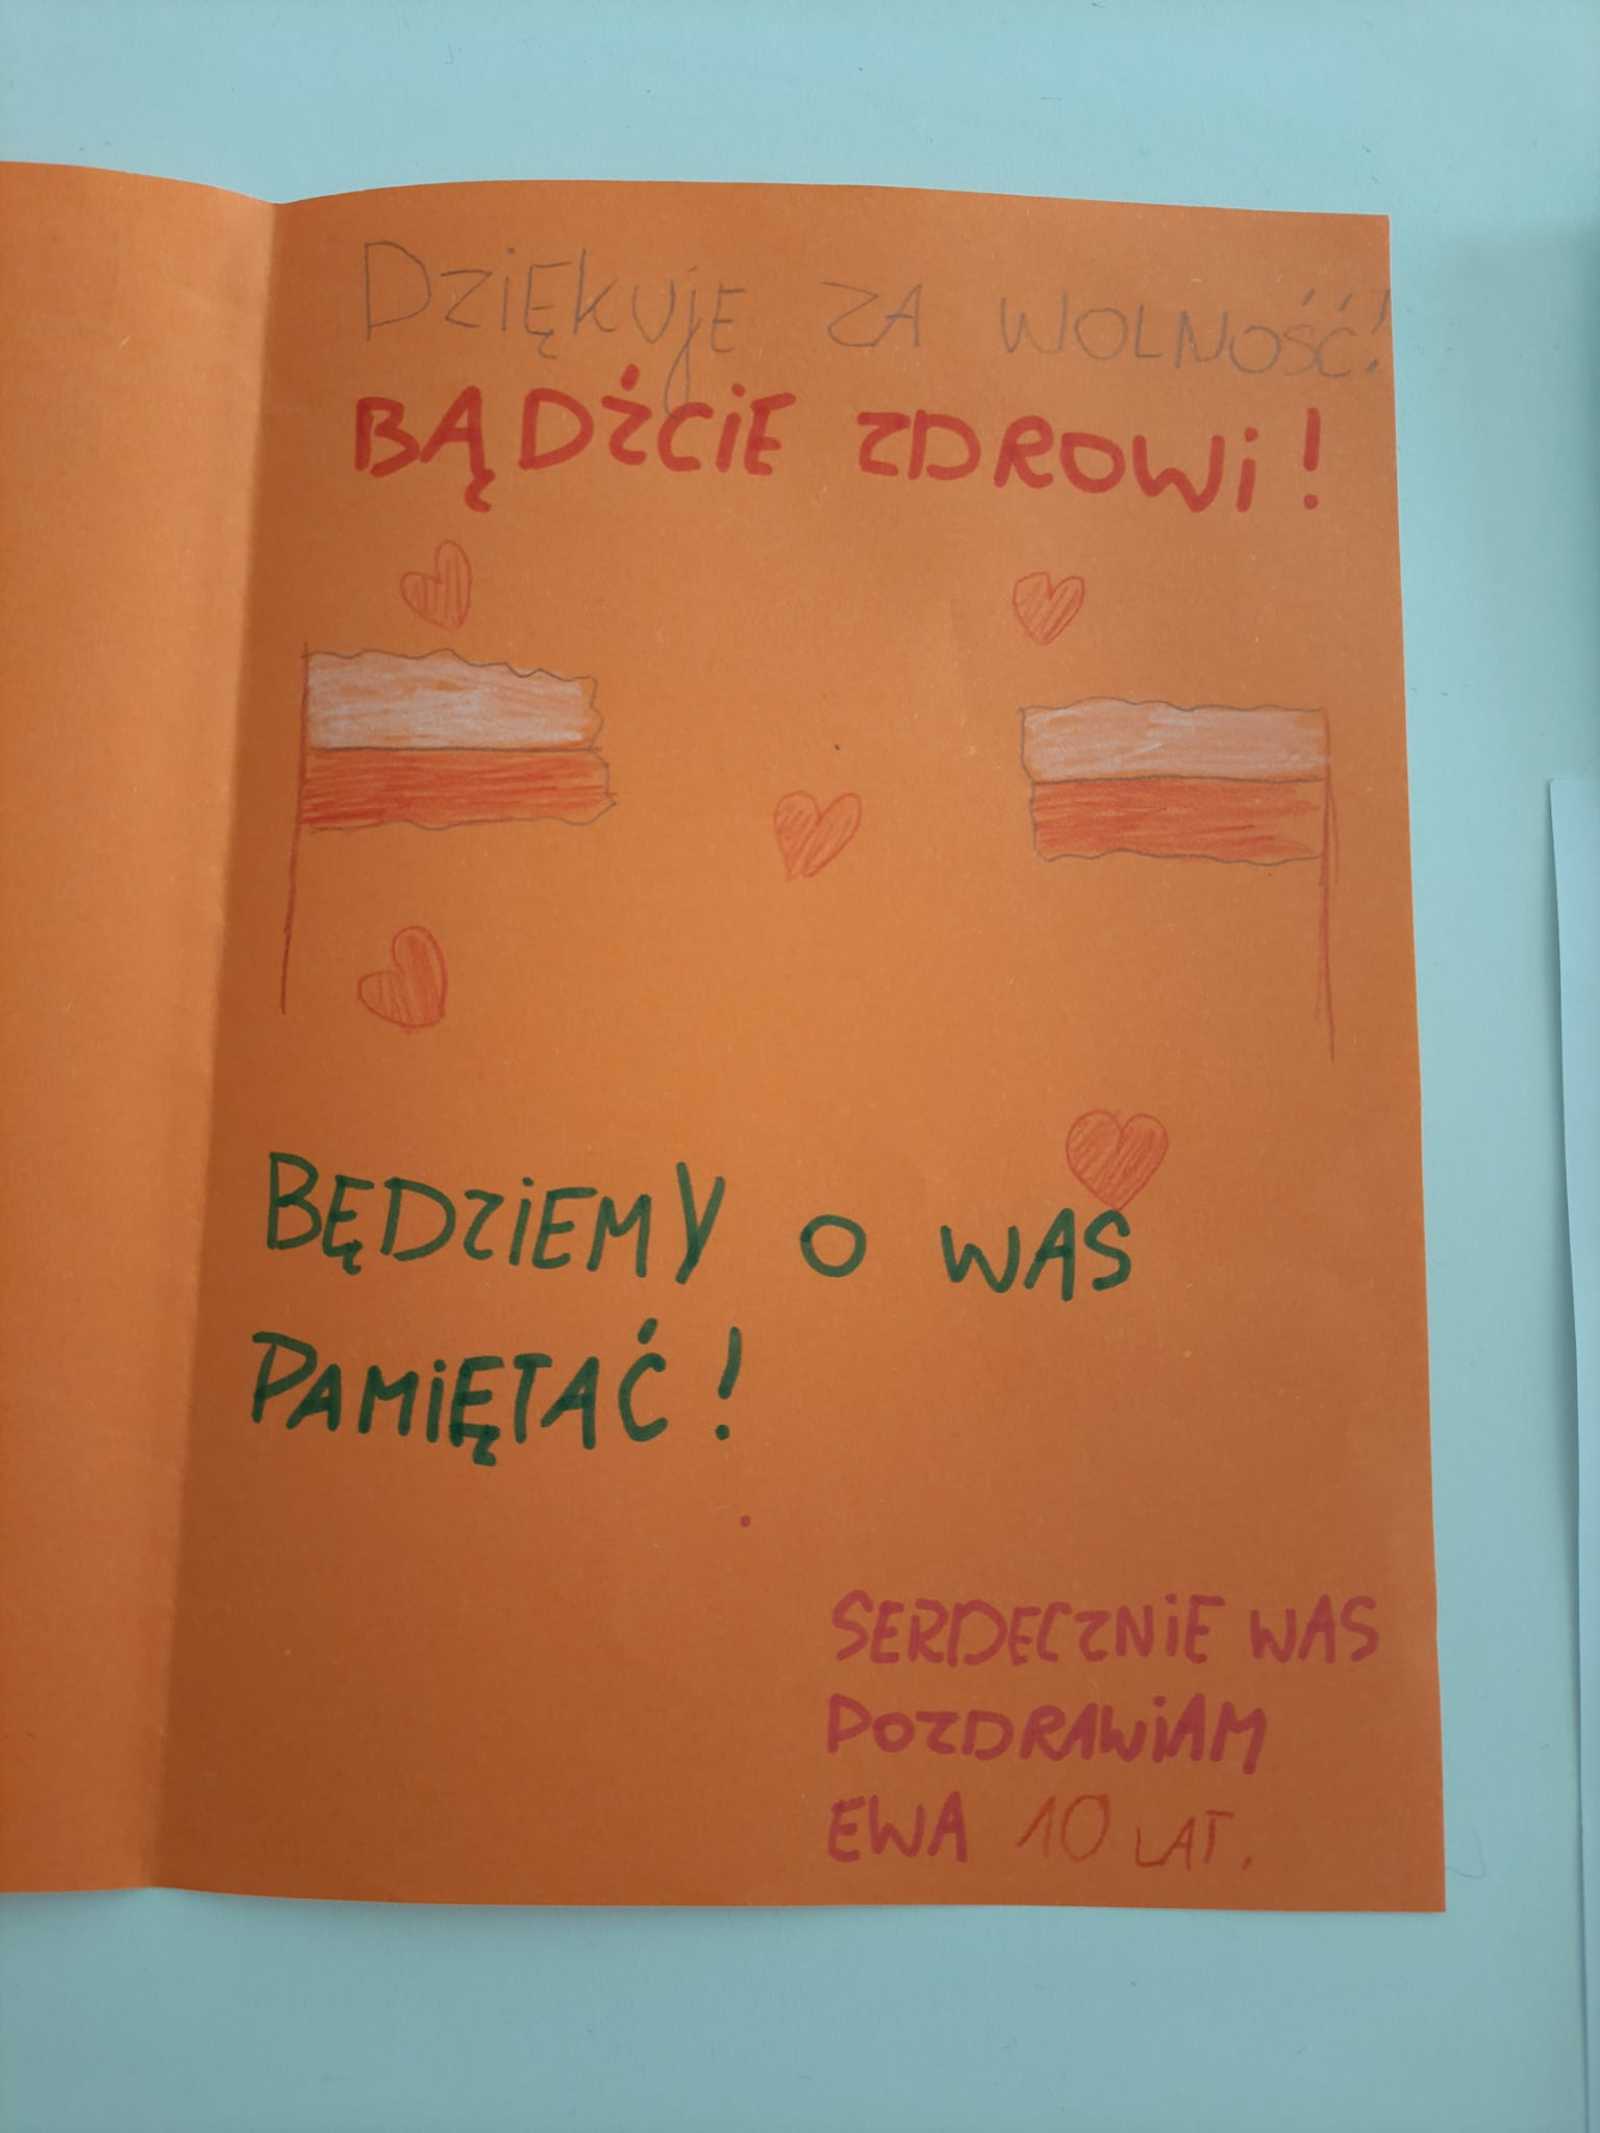 DZIĘKUJE ZA WOLNOŚĆ!
BĄDŹCIE ZDROWI!
BĘDZIEMY O WAS
PAMIĘTAĆ!
SERDECZNIE WAS
POZDRAWIAM
EWA 10 LAT.